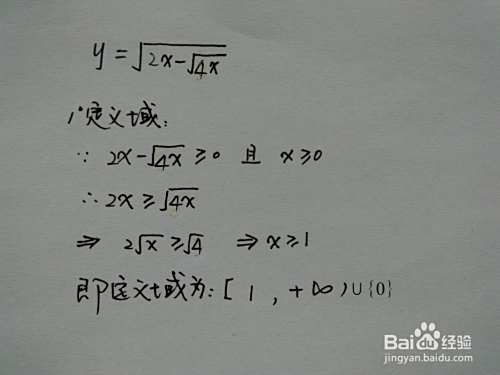 y = √(2x-√(4x))
1°定义域:
∵ 2x-√(4x) ≥0 且 x≥0
∴ 2x ≥ √(4x)
⇒ 2√x ≥ √4 ⇒ x≥1
即定义域为: [ 1 , +∞ )∪{0}
Bai 经验
jingyan.baidu.com